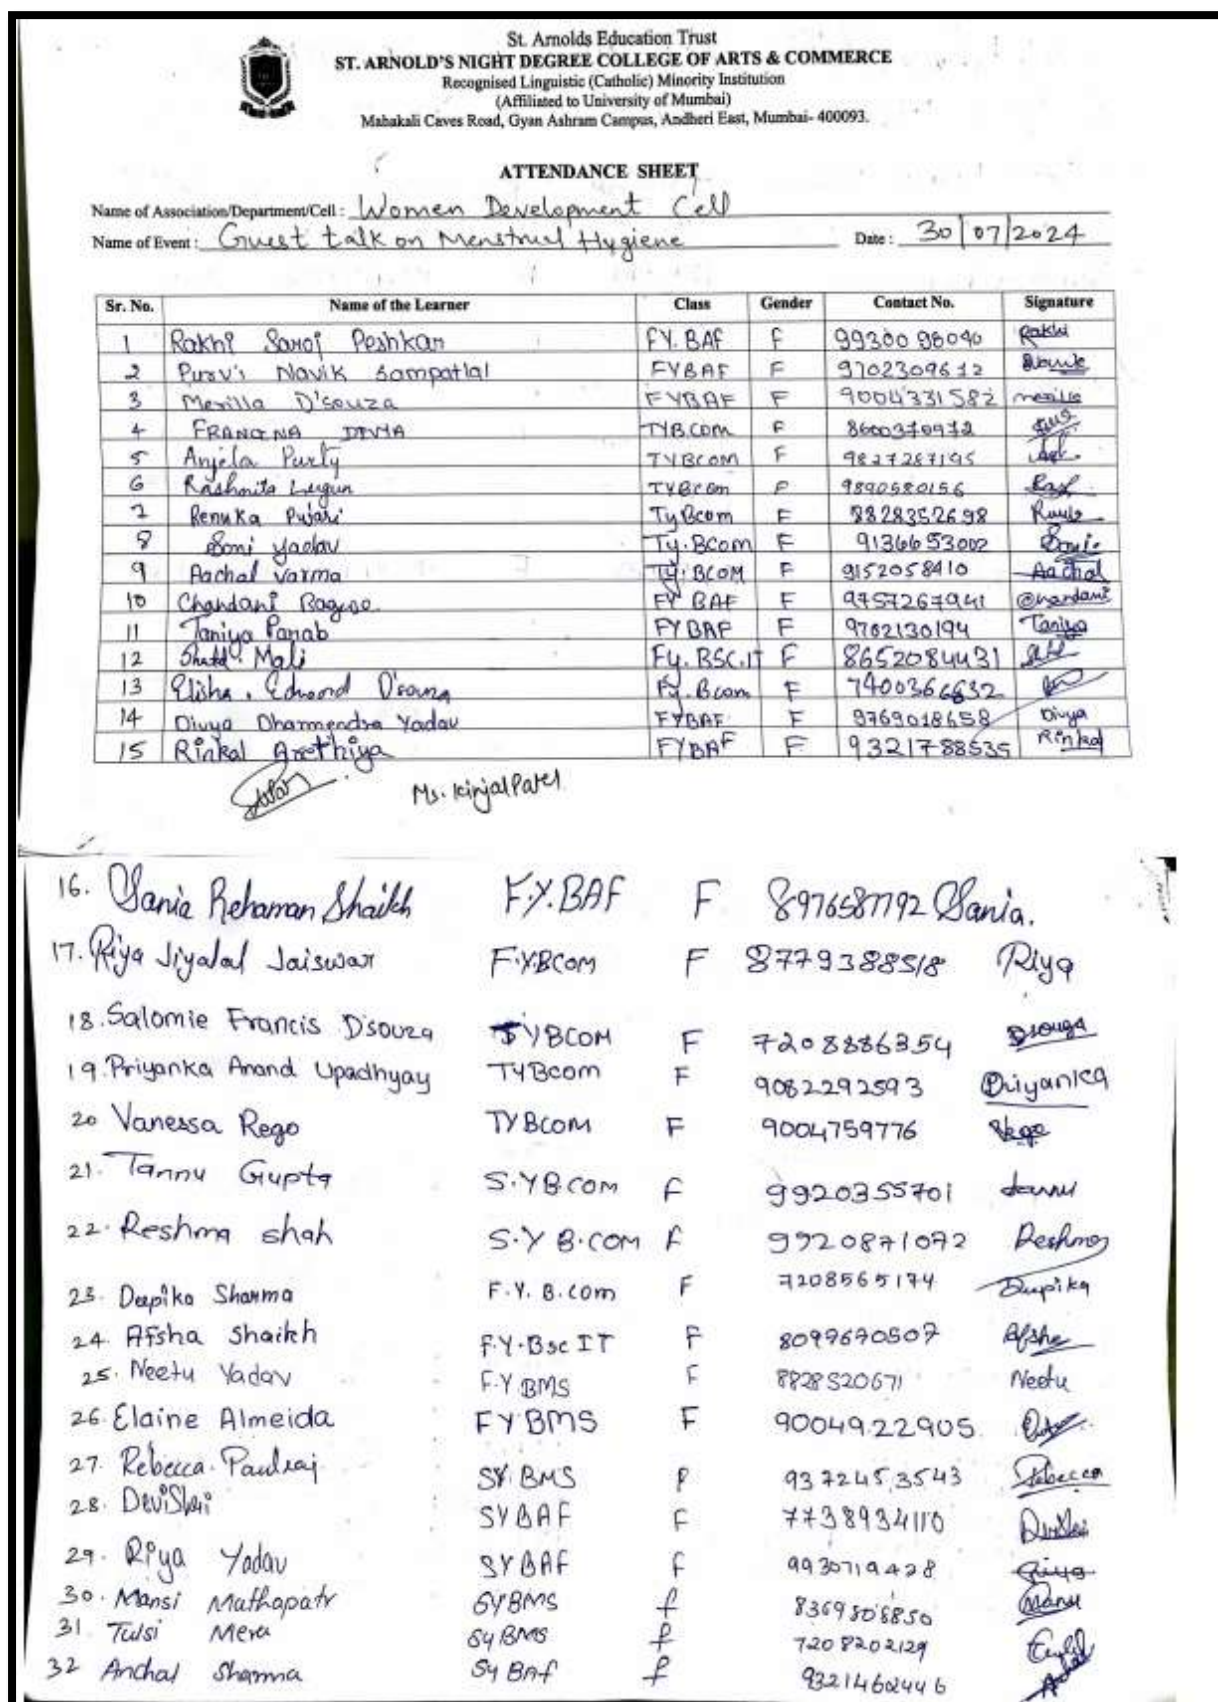 St. Arnolds Education Trust
ST. ARNOLD'S NIGHT DEGREE COLLEGE OF ARTS & COMMERCE
Recognised Linguistic (Catholic) Minority Institution
(Affiliated to University of Mumbai)
Mahakali Caves Road, Gyan Ashram Campus, Andheri East, Mumbai- 400093.
ATTENDANCE SHEET
Name of Association/Department/Cell : Women Development Cell
Name of Event : Guest talk on Menstrual Hygiene Date : 30/07/2024
Sr. No. Name of the Learner Class Gender Contact No. Signature
1 Rakhi Saroj Peshkar FY. BAF F 9930098040 Rakhi
2 Purvi Navik Sampatlal FYBAF F 9702309612
3 Merilla D'souza FYBAF F 9004331582 merilla
4 FRANCINA DIVYA TYB.COM F 8600370972
5 Anjela Purty TYBCOM F 9827287195
6 Rashmita Lugun TYBCOM F 9890580156
7 Renuka Pujari TyBcom F 8828352698
8 Soni Yadav Ty.BCom F 9136653002 Soni
9 Aachal Varma Ty.BCOM F 9152058410 Aachal
10 Chandani FY BAF F 9757267941 Chandani
11 Taniya Parab FYBAF F 9702130194 Taniya
12 Mali Fy. BSC.IT F 8652084431
13 Elisha . Edward D'souza Fy.Bcom F 7400366632
14 Divya Dharmendra Yadav FYBAF F 9769018658 Divya
15 Rinkal Arethiya FYBAF F 9321788535 Rinkal
Ms. Kinjal Patel
16. Sania Rehaman Shaikh F.Y.BAF F 8976587792 Sania.
17. Riya Jiyalal Jaiswar F.Y.BCOM F 8779388518 Riya
18. Salomie Francis D'souza TYBCOM F 7208886354 Dsouza
19. Priyanka Anand Upadhyay TYBcom F 9082292593 Priyanka
20 Vanessa Rego TYBCOM F 9004759776 Rego
21. Tannu Gupta S.YB.COM F 9920355701 tannu
22. Reshma shah S.Y B.COM F 9920871072 Reshma
23. Deepika Sharma F.Y. B.com F 7208565174 Deepika
24. Afsha Shaikh F.Y.Bsc IT F 8099670507 Afsha
25. Neetu Yadav F.Y BMS F 8828520671 Neetu
26. Elaine Almeida FYBMS F 9004922905
27. Rebecca. Paulraj SY.BMS F 9372453543 Rebecca
28. DeviShri SYBAF F 7738934110 DeviShri
29. Riya Yadav SYBAF F 9930719428 Riya
30. Mansi Mathapatr SYBMS f 8369808850 Mansi
31. Tulsi Mera SyBMS f 7208202129
32 Anchal Sharma Sy BAf f 9321462446